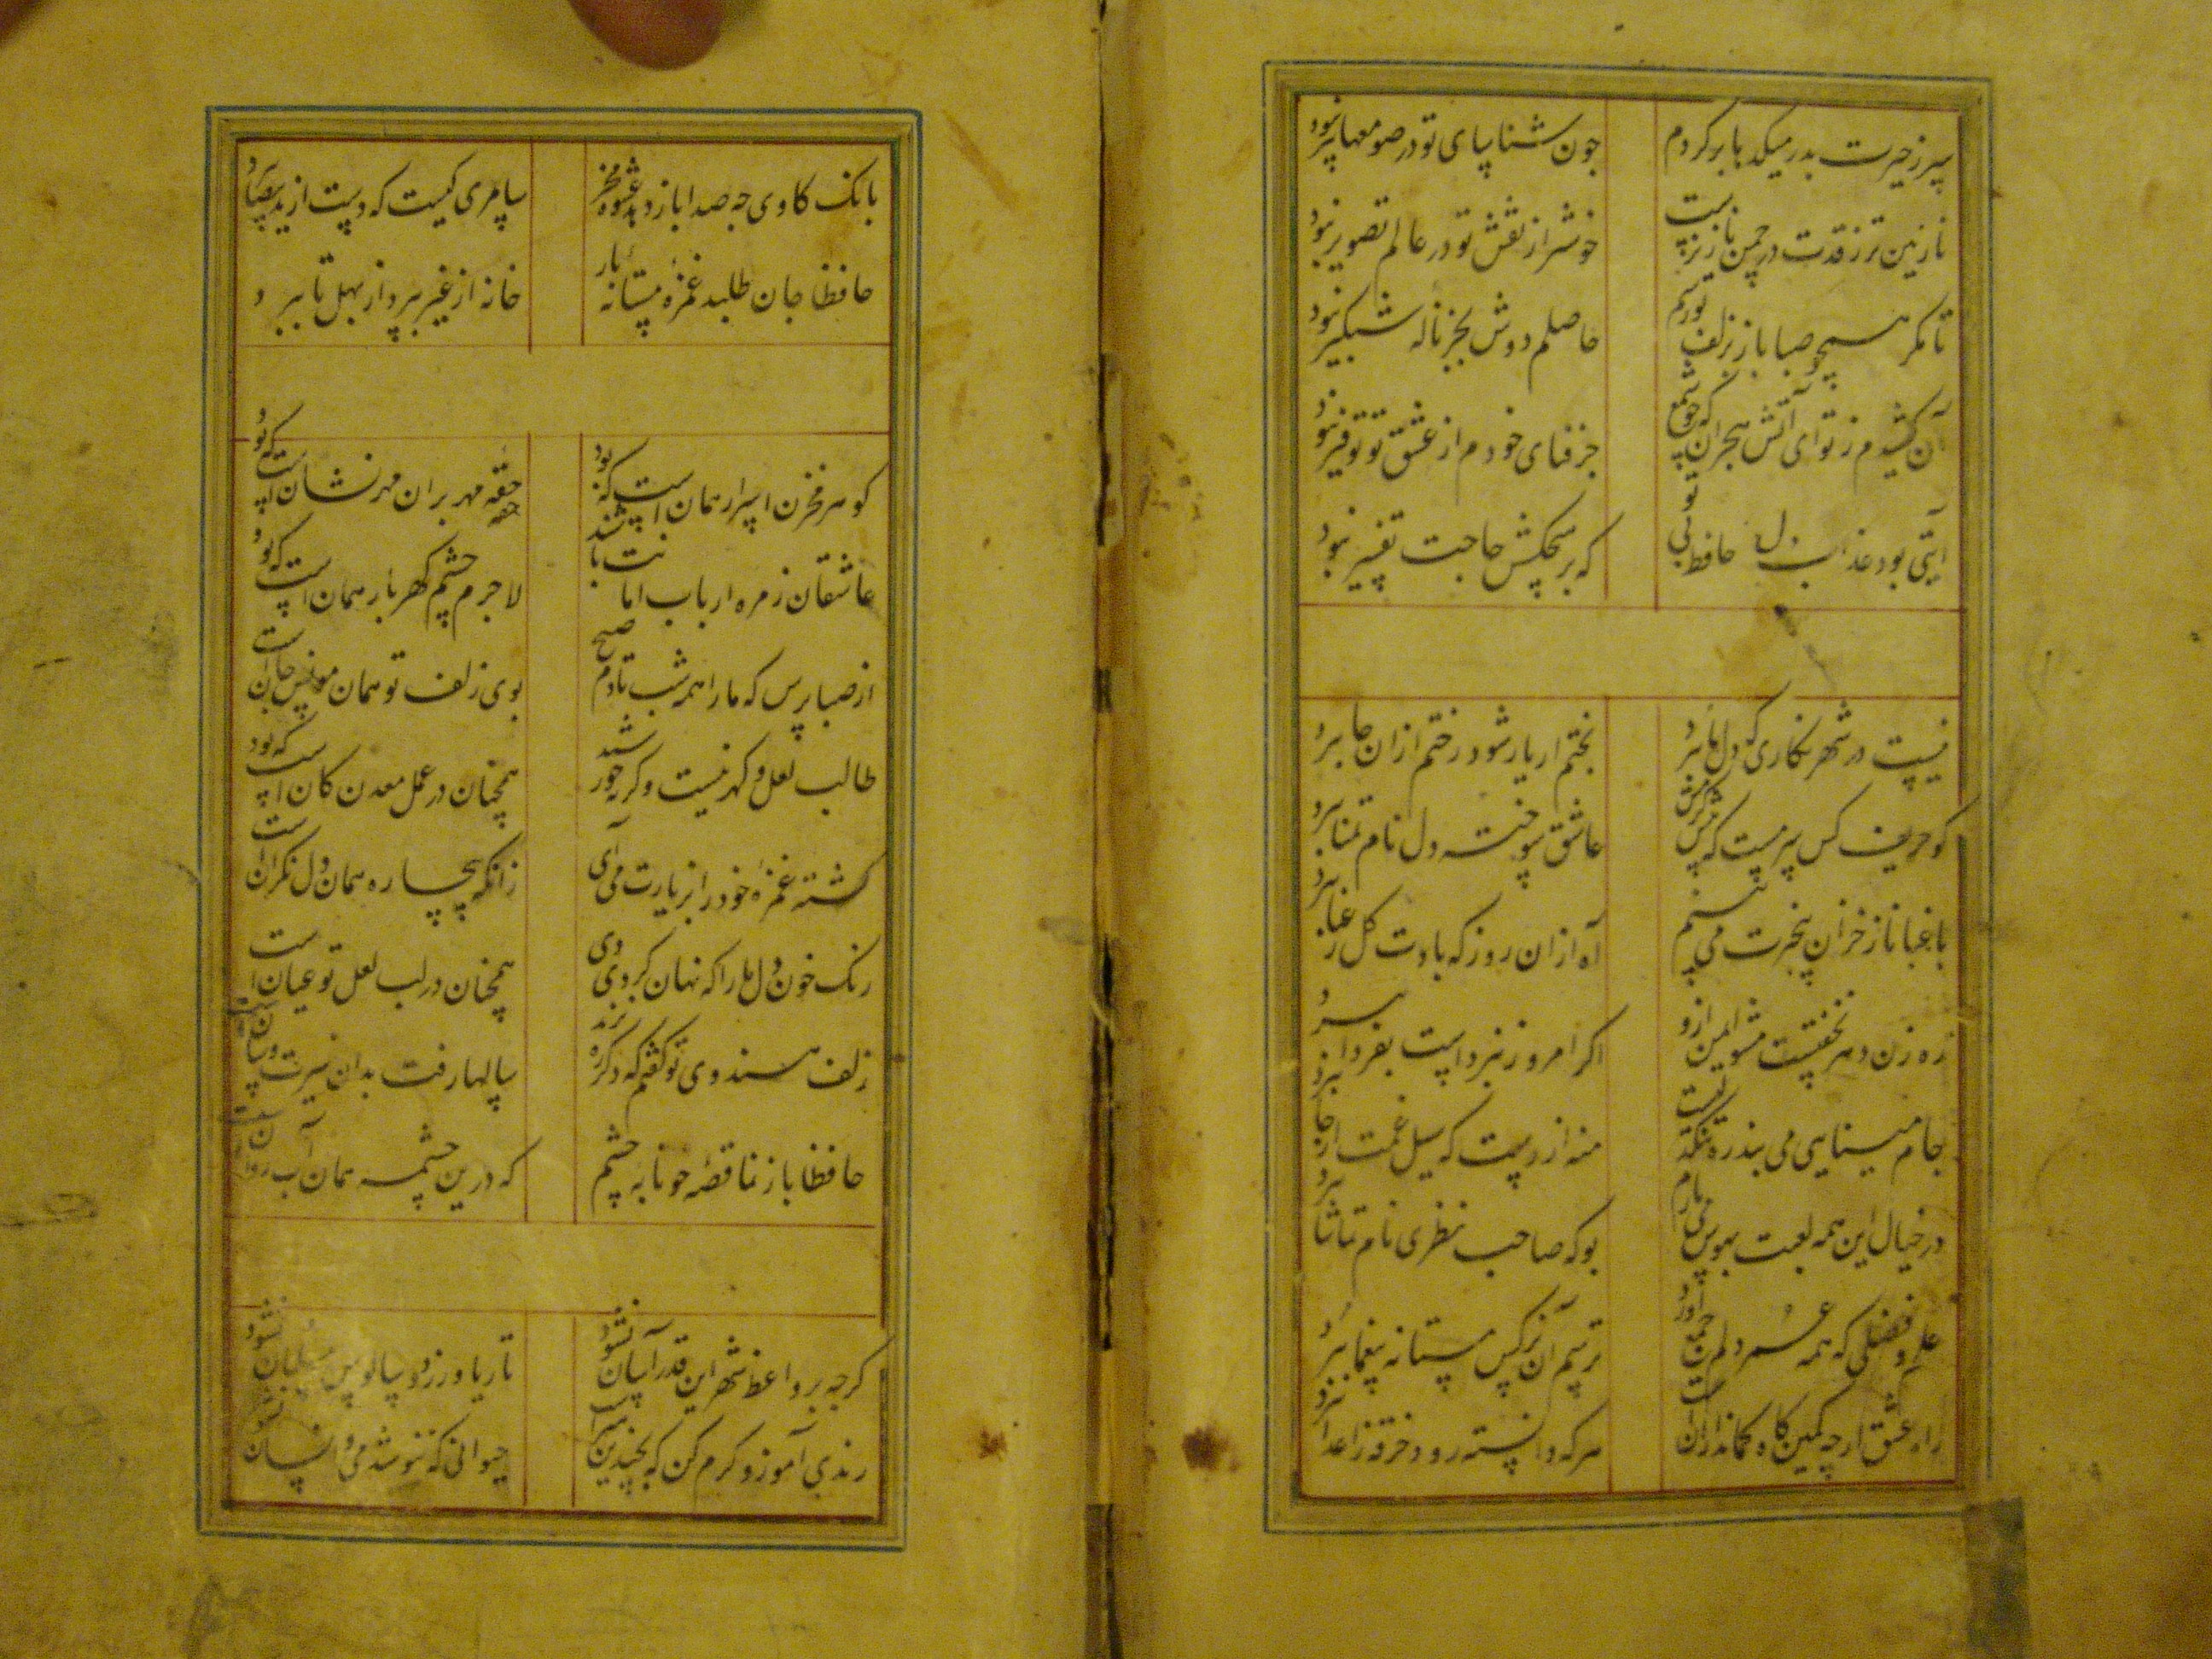 سر ز حیرت بدر میکدها بر کردم
چون شناسای تو در صومعها پیر نبود
نازنین تر ز قدت در چمن ناز نرست
خوشتر از نقش تو در عالم تصویر نبود
تا مکر همچو صبا باز بزلف تو رسم
حاصلم دوش بجز ناله شبکیر نبود
آن کشیدم ز تو ای آتش هجران که چو شمع
جز فنای خودم از عشق تو توقیر نبود
ایتی بود عذاب دل حافظ بی تو
که بر هیچکسش حاجت تفسیر نبود
نیست در شهر نکاری که دل ما ببرد
بختم ار یار شود رختم ازان جا ببرد
کو حریف کس سرمست که پیش کرمش
عاشق سوخته دل نام تمنا ببرد
باغبانا ز خزان بیخبرت می بینم
آه ازان روز که بادت کل رعنا ببرد
ره زن دهر نخفتست مشو ایمن ازو
اکر امروز نبردست بفردا ببرد
جام مینایی می سد ره تنکدلیست
منه از دست که سیل غمت از جا ببرد
در خیال این همه لعبت بهوس می بازم
بو که صاحب نظری نام تماشا ببرد
علم و فضلی که همه عمر دلم جمع آورد
ترسم آن نرکس مستانه بیغما ببرد
راه عشق ارچه کمین کاه کماندارانست
هر که دانسته رود صرفه ز اعدا ببرد
بانک کاوی چه صدا باز دهد عشوه مخر
سامری کیست که دست از ید بیضا ببرد
حافظا جان طلبد غمزه مستانه یار
خانه از غیر بپرداز بهل تا ببرد
کوهر مخزن اسرار همان است که بود
حقه مهر بران مهر نشان است که بود
عاشقان زمره ارباب امانت باشند
لاجرم چشم کهر بار همان است که بود
از صبا پرس که ما را همه شب تا دم صبح
بوی زلف تو همان مونس جان است
طالب لعل و کهر نیست و کر نه خورشید
همچنان در عمل معدن کان است که بود
کشته غمزه خود را بزیارت می آی
زانکه بیچاره همان دل نکران است
رنک خون دل ما را که نهان کردی
همچنان در لب لعل تو عیان است
زلف هندوی تو کفتم که دکر ره نزند
سالها رفت بدان سیرت و سان
حافظا باز نما قصه خونابه چشم
که درین چشمه همان آب روان
کر چه بر واعظ شهر این قدر آسان نشود
تا ریا ورزد و سالوس مسلمان نشود
رندی آموز و کرم کن که نه چندین هنرست
حیوانی که ننوشد می و انسان نشود